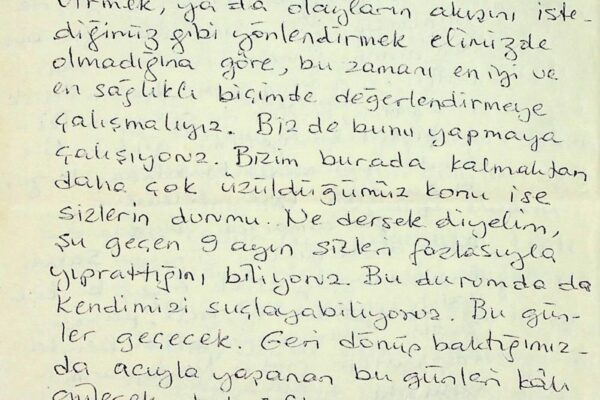 virmek, ya da olayların akışını iste-
diğimiz gibi yönlendirmek elimizde
olmadığına göre, bu zamanı en iyi ve
en sağlıklı biçimde değerlendirmeye
çalışmalıyız. Biz de bunu yapmaya
çalışıyoruz. Bizim burada kalmaktan
daha çok üzüldüğümüz konu ise
sizlerin durumu. Ne dersek diyelim,
şu geçen 9 ayın sizleri fazlasıyla
yıprattığını biliyoruz. Bu durumda da
kendimizi suçlayabiliyoruz. Bu gün-
ler geçecek. Geri dönüp baktığımız-
da acıyla yaşanan bu günleri